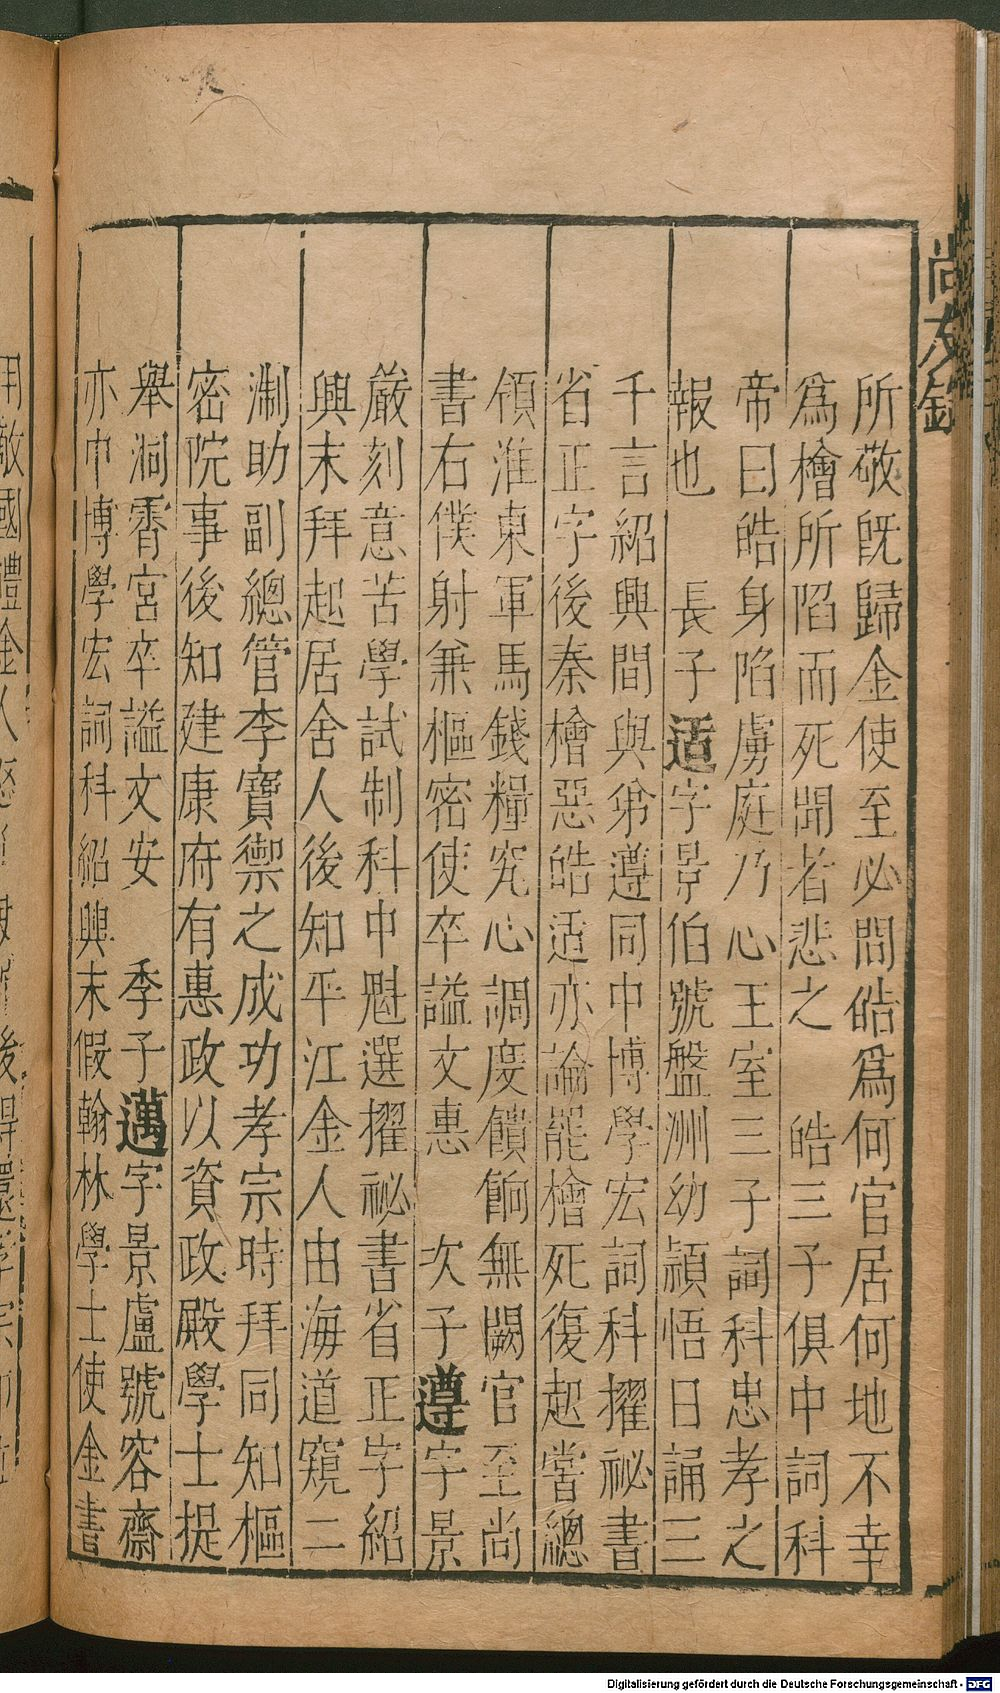 尚友錄
所敬旣歸金使至必問皓爲何官居何地不幸
爲檜所陷而死聞者悲之　皓三子俱中詞科
帝曰皓身陷虜庭乃心王室三子詞科忠孝之
報也　長子适字景伯號盤洲幼頴悟日誦三
千言紹興間與弟遵同中博學宏詞科擢祕書
省正字後秦檜惡皓适亦論罷檜死復起嘗總
領淮東軍馬錢糧究心調度饋餉無闕官至尚
書右僕射兼樞密使卒謚文惠　次子遵字景
嚴刻意苦學試制科中魁選擢祕書省正字紹
興末拜起居舍人後知平江金人由海道窺二
淛助副總管李寶禦之成功孝宗時拜同知樞
密院事後知建康府有惠政以資政殿學士提
舉洞霄宮卒謚文安　季子邁字景盧號容齋
亦中博學宏詞科紹興末假翰林學士使金書
Digitalisierung gefördert durch die Deutsche Forschungsgemeinschaft - DFG